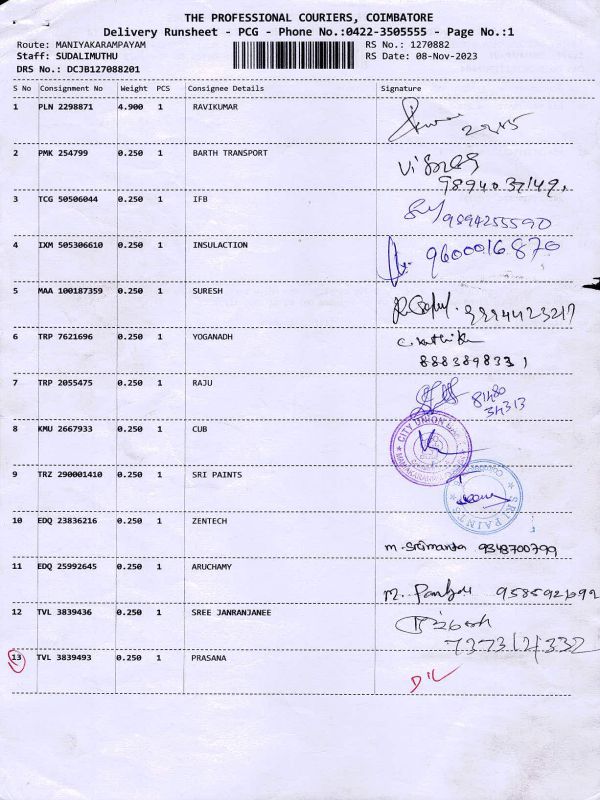 THE PROFESSIONAL COURIERS, COIMBATORE
Delivery Runsheet - PCG - Phone No.:0422-3505555 - Page No.:1
Route: MANIYAKARAMPAYAM RS No.: 1270882
Staff: SUDALIMUTHU RS Date: 08-Nov-2023
DRS No.: DCJB127088201
S No Consignment No Weight PCS Consignee Details Signature
1 PLN 2298871 4.900 1 RAVIKUMAR
2 PMK 254799 0.250 1 BARTH TRANSPORT
3 TCG 50506044 0.250 1 IFB
9894255590
4 IXM 505306610 0.250 1 INSULACTION
9600016870
5 MAA 100187359 0.250 1 SURESH
6 TRP 7621696 0.250 1 YOGANADH
8883898331
7 TRP 2055475 0.250 1 RAJU
81480
34313
8 KMU 2667933 0.250 1 CUB
CITY UNION
9 TRZ 290001410 0.250 1 SRI PAINTS
SRI PAINTS
10 EDQ 23836216 0.250 1 ZENTECH
9848700799
11 EDQ 25992645 0.250 1 ARUCHAMY
12 TVL 3839436 0.250 1 SREE JANRANJANEE
13 TVL 3839493 0.250 1 PRASANA